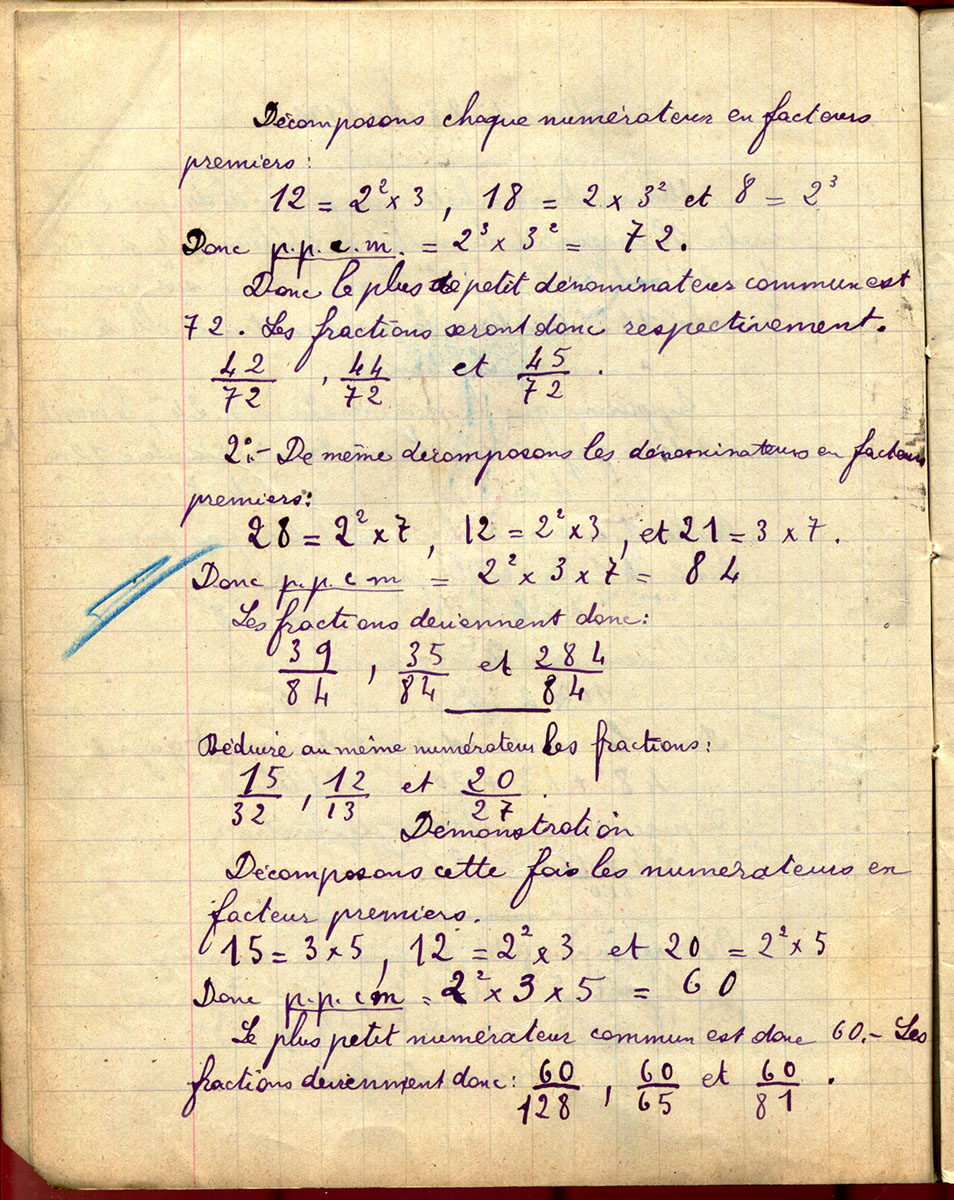 Décomposons chaque numérateur en facteurs
premiers :
12 = 2² x 3, 18 = 2 x 3² et 8 = 2³
Donc p.p.c.m. = 2³ x 3² = 72.
Donc le plus petit dénominateur commun est
72. Les fractions seront donc respectivement.
42/72, 44/72 et 45/72.
2°.- De même décomposons les dénominateurs en facteurs
premiers:
28 = 2² x 7, 12 = 2² x 3, et 21 = 3 x 7.
Donc p.p.c m = 2² x 3 x 7 = 84
Les fractions deviennent donc:
39/84, 35/84 et 284/84
Réduire au même numérateur les fractions:
15/32, 12/13 et 20/27.
Démonstration
Décomposons cette fois les numérateurs en
facteur premiers.
15 = 3 x 5, 12 = 2² x 3 et 20 = 2² x 5
Donc p.p.c m = 2² x 3 x 5 = 60
Le plus petit numérateur commun est donc 60.- Les
fractions deviennent donc: 60/128, 60/65 et 60/81.